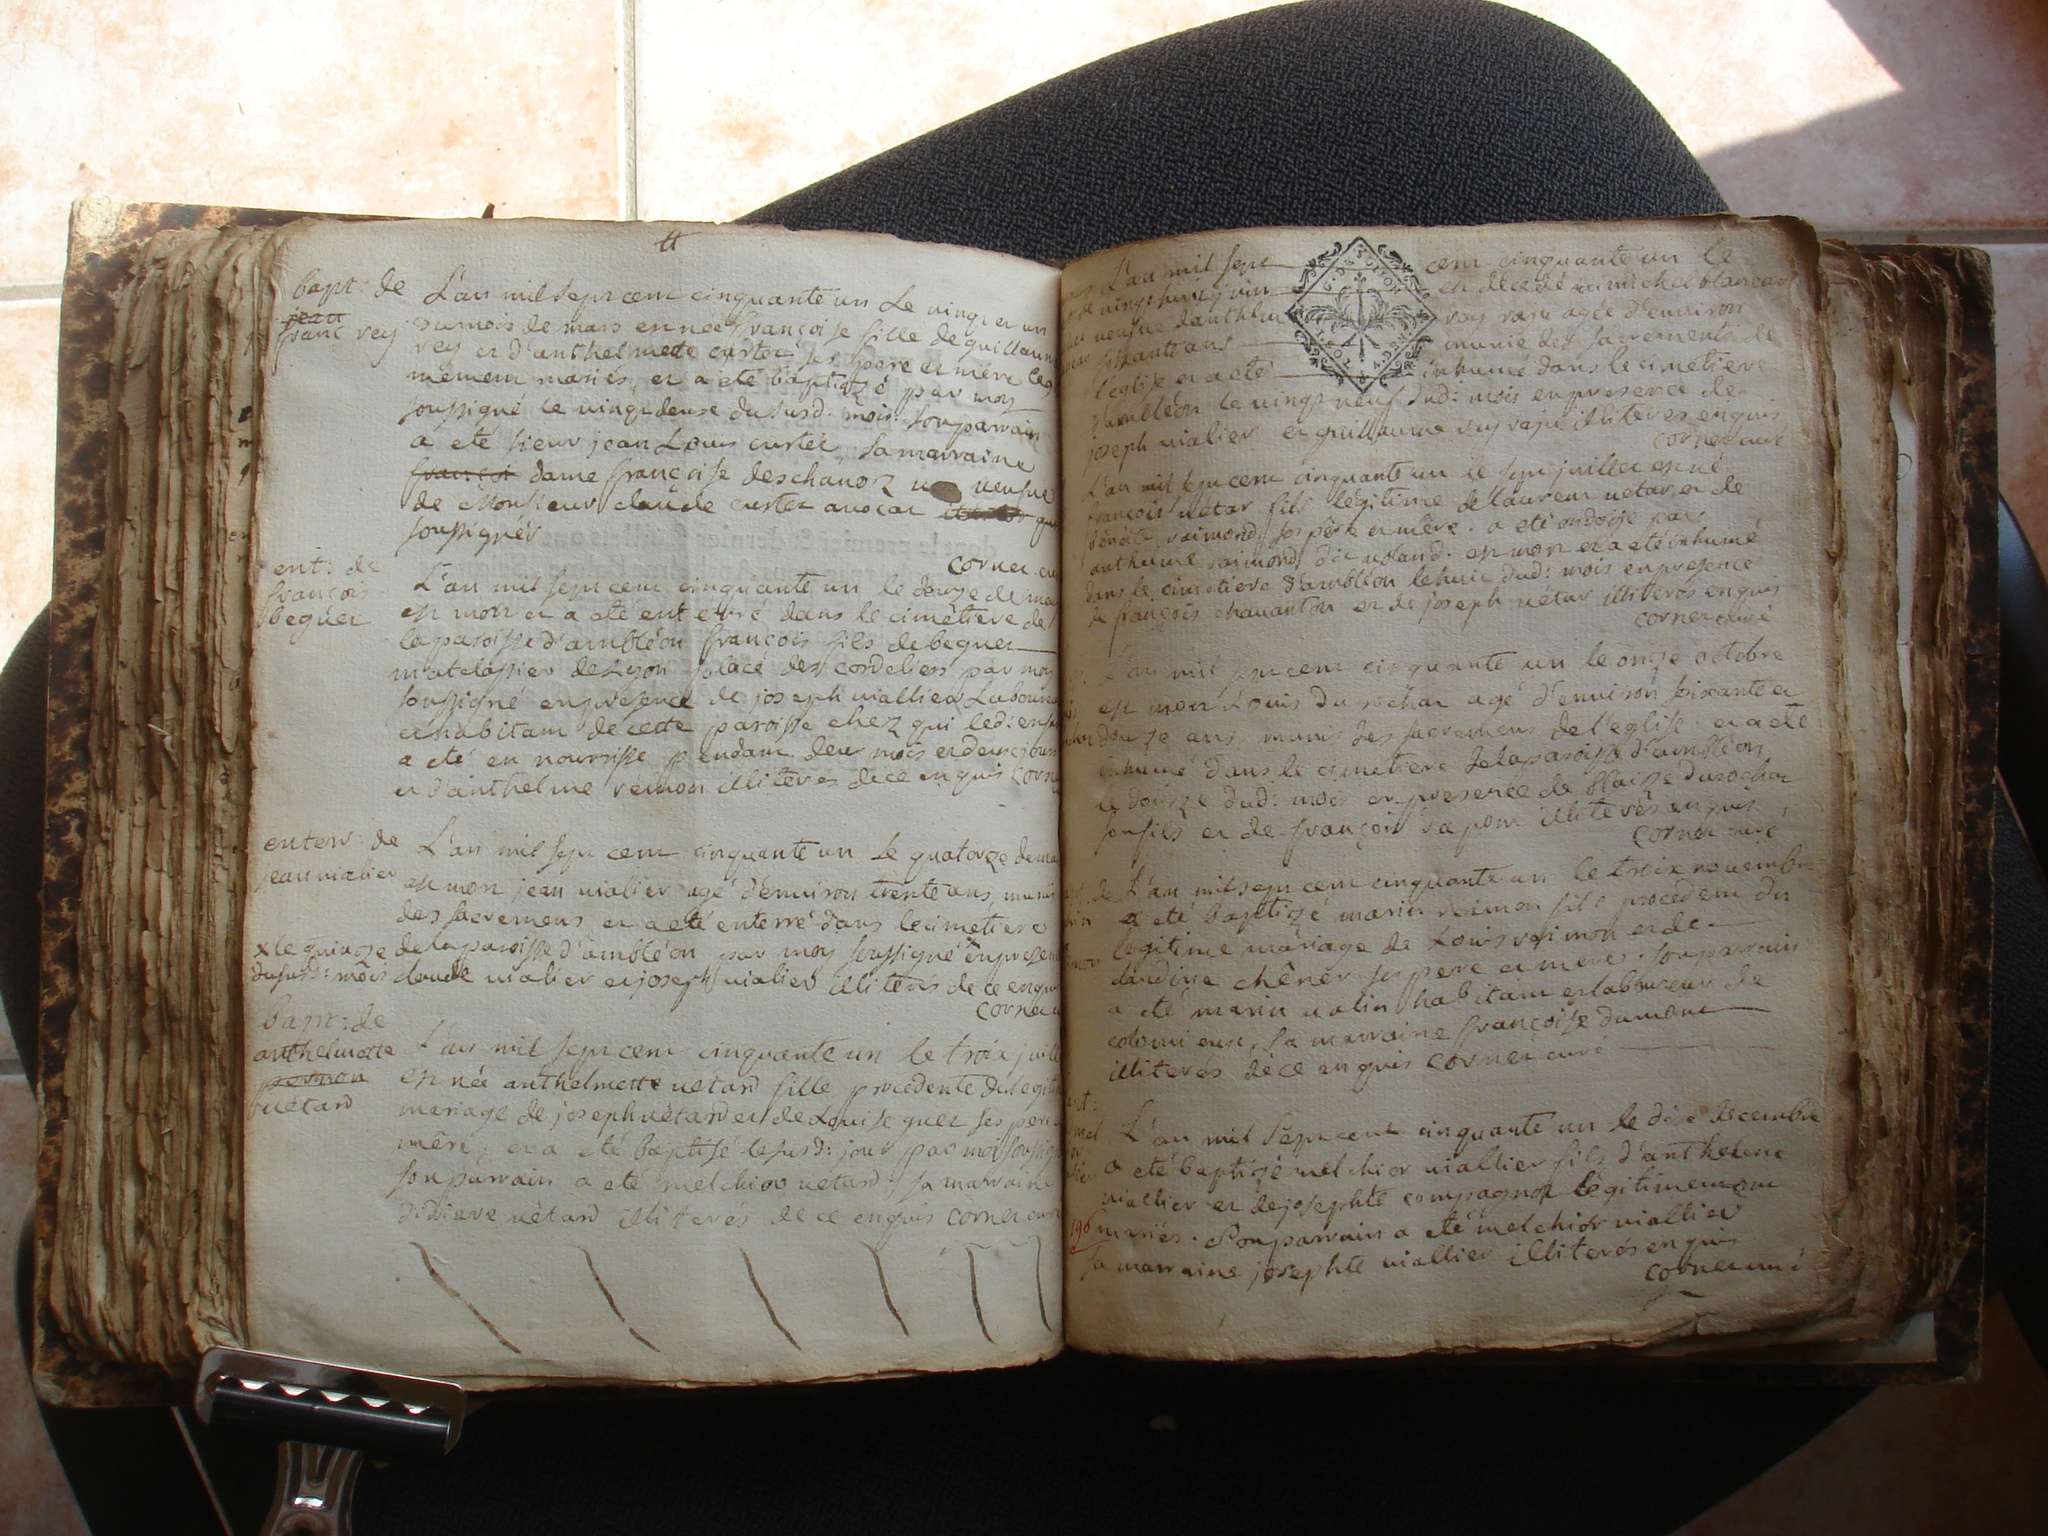 bapt: de
jean
franc rey
L'an mil sept cent cinquante un Le vingt et un
du mois de mars est née françoise fille de guillaume
rey et d'anthelmette curtet ses pere et mère legi
mement mariés, et a été baptizé par moy
soussigné le vingtdeuxe du susd: mois. son parrain
a été sieur jean Louis curtet, sa marraine
françoi dame françoise deschanoz veufue
de Monsieur claude curtet avocat
soussignés
cornet cu
ent: de
françois
beguer
L'an mil sept cent cinquante un le douze de may
est mort et a été enterré dans le cimetiere de
la paroisse d'ambléon françois fils de beguer
matelassier de Lyon place des cordeliers par moy
soussigné en presence de joseph viallier Laboureur
et habitant de cette paroisse chez qui led: enfant
a été en nourrisse pendant deux mois et deux jours
et d'anthelme réimon illiterés de ce enquis corn
enterr: de
jean vialier
L'an mil sept cent cinquante un le quatorze de may
est mort jean vialier agé d'environ trente ans, munis
des sacremens et a été enterré dans le cimetiere
x le quinze
dususd: mois
de la paroisse d'ambléon par moy soussigné x en presen
claude vialier et joseph vialier illiterés de ce enqui
cornet c
bapt: de
anthelmette
permon
vétard
L'an mil sept cent cinquante un le troix juill
est née anthelmette vetard fille procedente du legiti
mariage de joseph vétard et de Louise guer ses pere
mère, et a été baptisé le susd: jour par moi soussig
son parrain a été melchior vetard, sa marraine
didiere vétard illiterés de ce enquis cornet curé
L'an mil sept cent cinquante un le
vingt huit juin est décédé michel blancard
veufue d'anthelm
soixante ans agée d'environ
munie des sacrements de
l'eglise et a été inhumé dans le cimetiere
d'ambléon le vingt neuf dud: mois en presence de
joseph vialier et guillaume rey illiterés enquis
cornet curé
L'an mil sept cent cinquante un le sept juillet est né
françois vétar fils légitime de laurent vetar et de
bénoite raimond, ses père et mère. a été ondoyé par
anthelme raimond dit roland. est mort et a été inhumé
dans le cimetiere d'ambléon le huit dud: mois en presence
de françois chavanton et de joseph vétar illiterés enquis
cornet curé
L'an mil sept cent cinquante un le onze octobre
est mort Louis du rochar agé d'environ soixante et
douze ans, munis des sacremens de l'eglise et a été
inhumé dans le cimetiere de la paroisse d'ambléon
le douze dud: mois en presence de Blaize durochar
son fils et de françois rapou illiterés enquis
cornet curé
L'an mil sept cent cinquante un le troix novembre
a été baptizé marin reimon fils procedent du
légitime mariage de Louis reimon et de
claudine chêner ses pere et mere. son parrain
a été marin valin habitant et laboureur de
colomieux, sa marraine françoise dumont
illiterés de ce enquis cornet curé
L'an mil sept cent cinquante un le dixe decembre
a été baptizé melchior viallier fils d'anthelme
viallier et de josephte compagnot légitimement
196
mariés. son parrain a été melchior viallier
sa marraine josephte viallier illiterés enquis
cornet curé